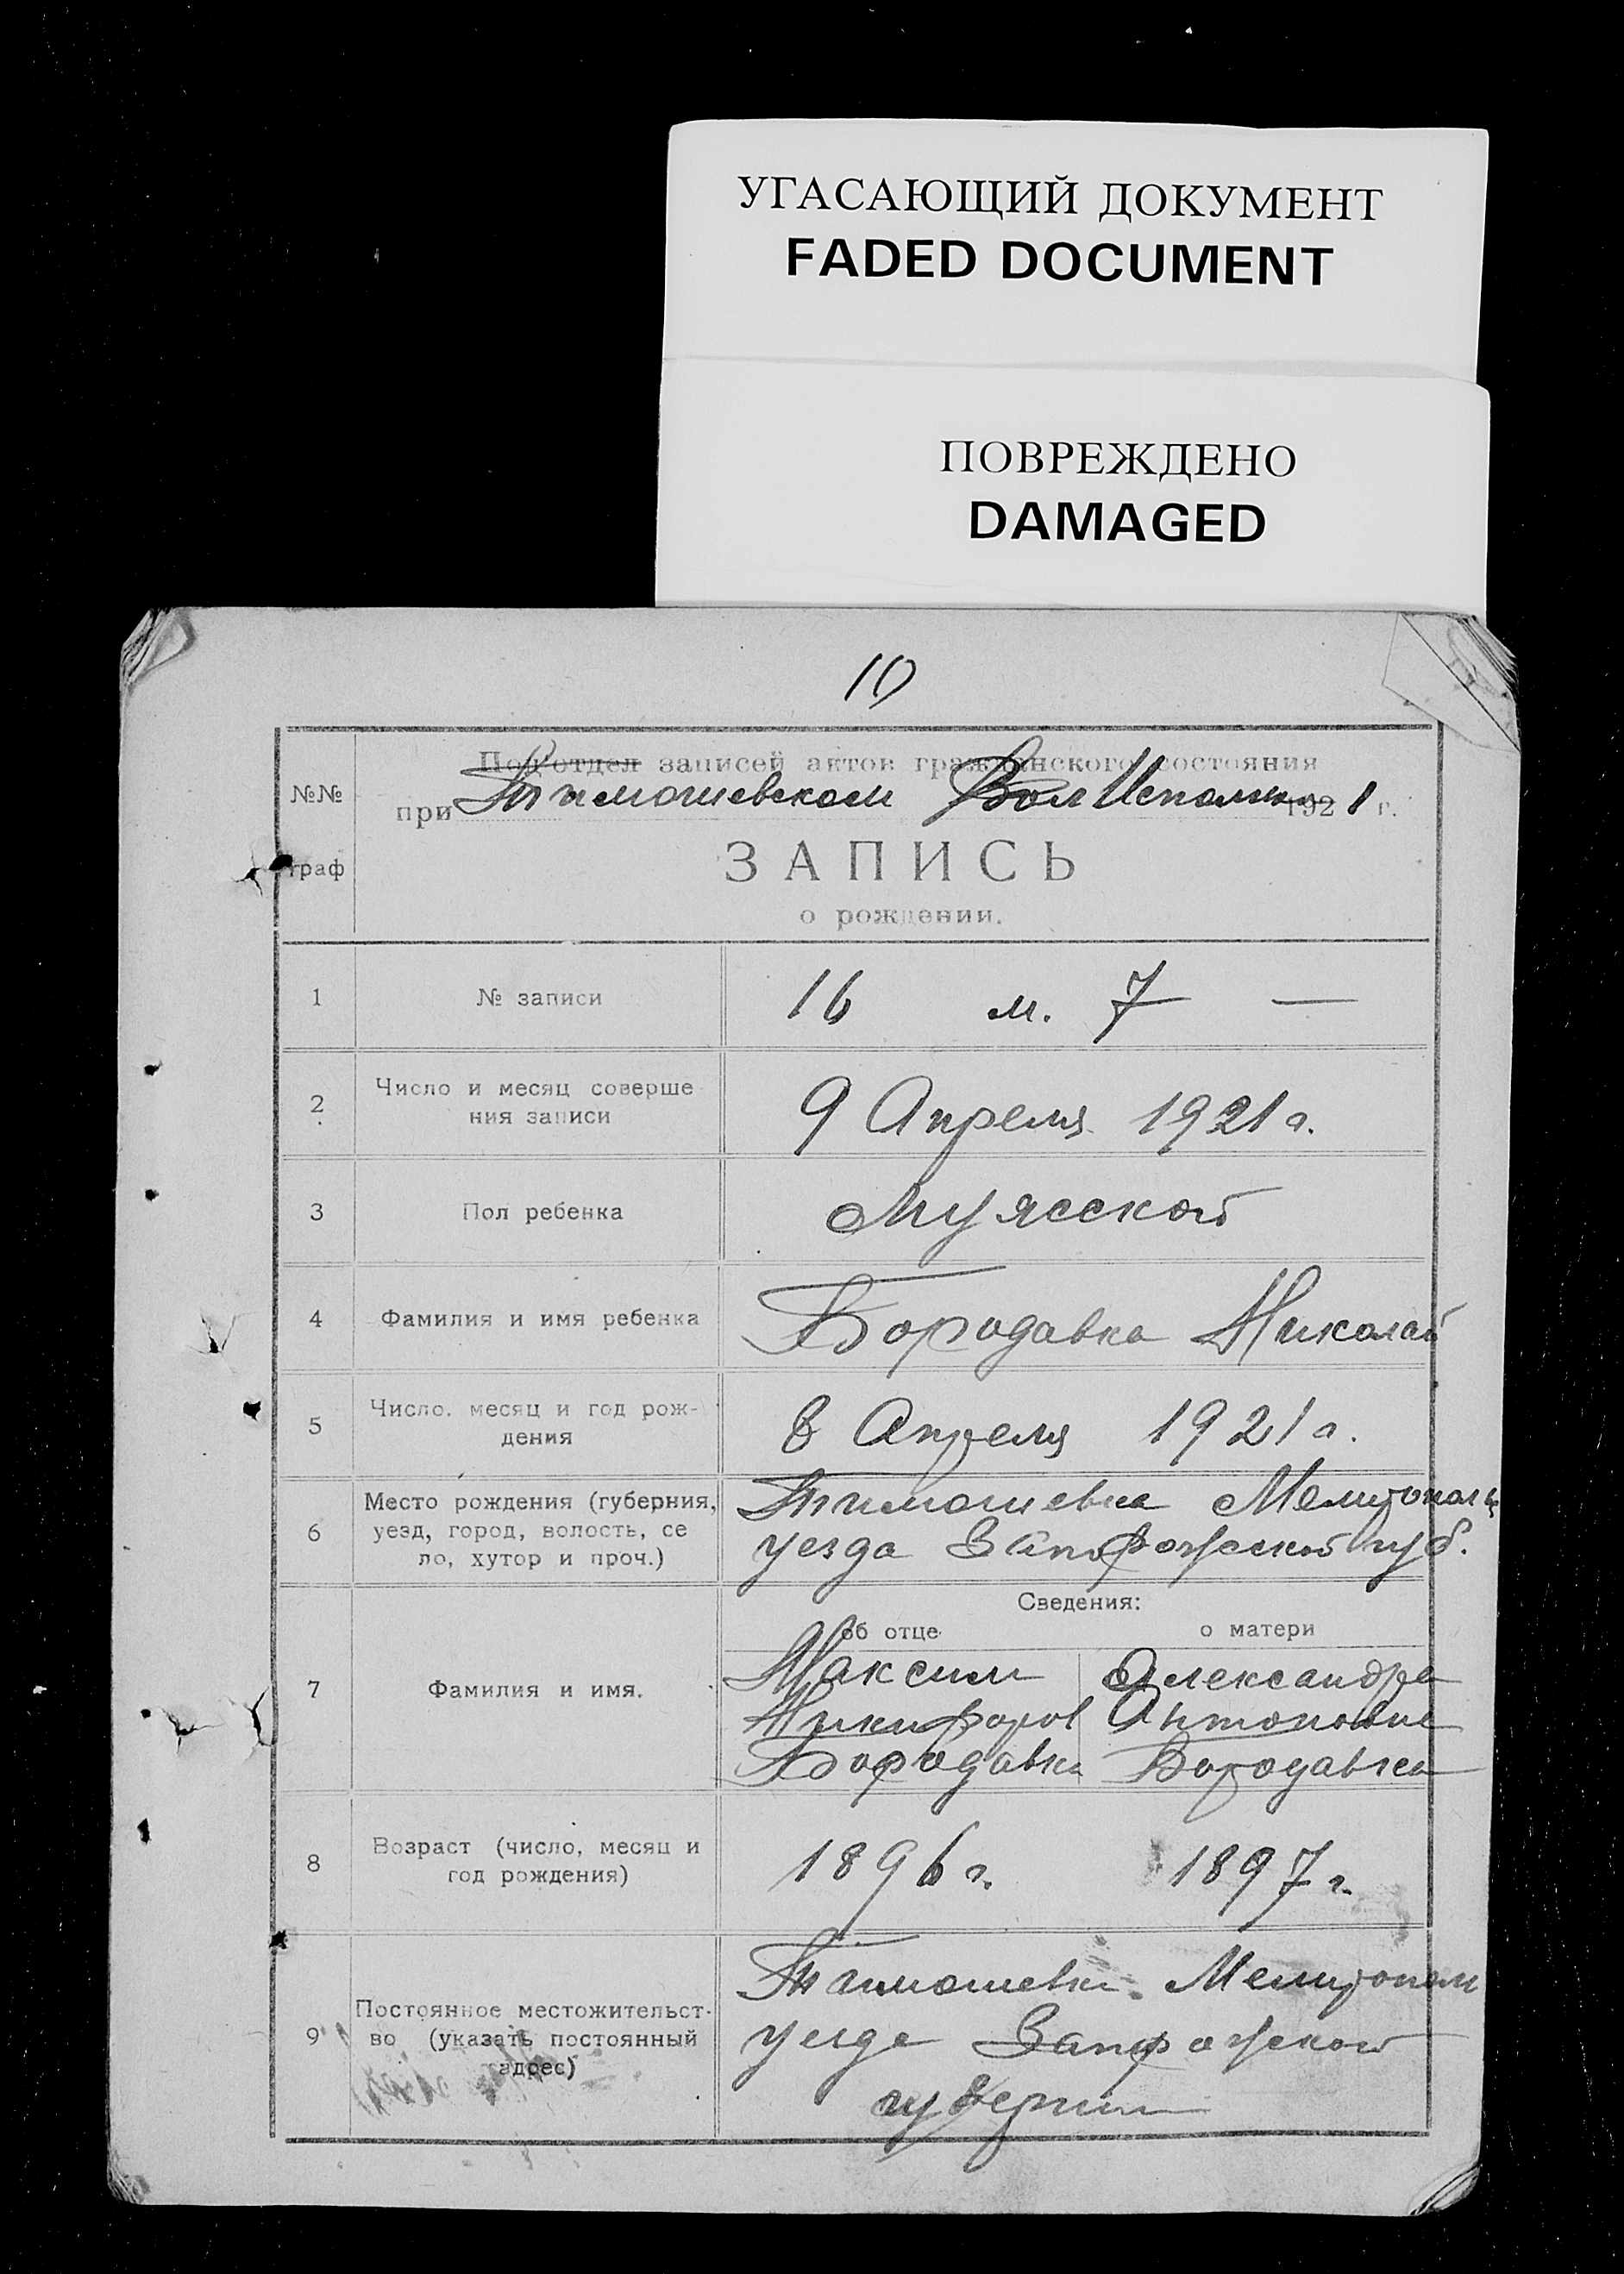 УГАСАЮЩИЙ ДОКУМЕНТ
FADED DOCUMENT
ПОВРЕЖДЕНО
DAMAGED
10
№№ граф
Подотдел записей актов гражданского состояния
при Тимошевском ВолИсполк. 1921 г.
ЗАПИСЬ
о рождении.
1 № записи 16 м. 7 —
2 Число и месяц соверше
ния записи 9 Апреля 1921 г.
3 Пол ребенка Мужеской
4 Фамилия и имя ребенка Бородавка Николай
5 Число, месяц и год рож-
дения 8 Апреля 1921 г.
6 Место рождения (губерния,
уезд, город, волость, се
ло, хутор и проч.)
Тимошевка Мелитополь
уезда Запорожской губ.
Сведения:
об отце о матери
7 Фамилия и имя.
Максим Александра
Никифоров Антоновна
Бородавка Бородавка
8 Возраст (число, месяц и
год рождения) 1896 г. 1897 г.
9 Постоянное местожительст-
во (указать постоянный
адрес)
Тимошевки Мелитопол
уезда Запорожской
губернии